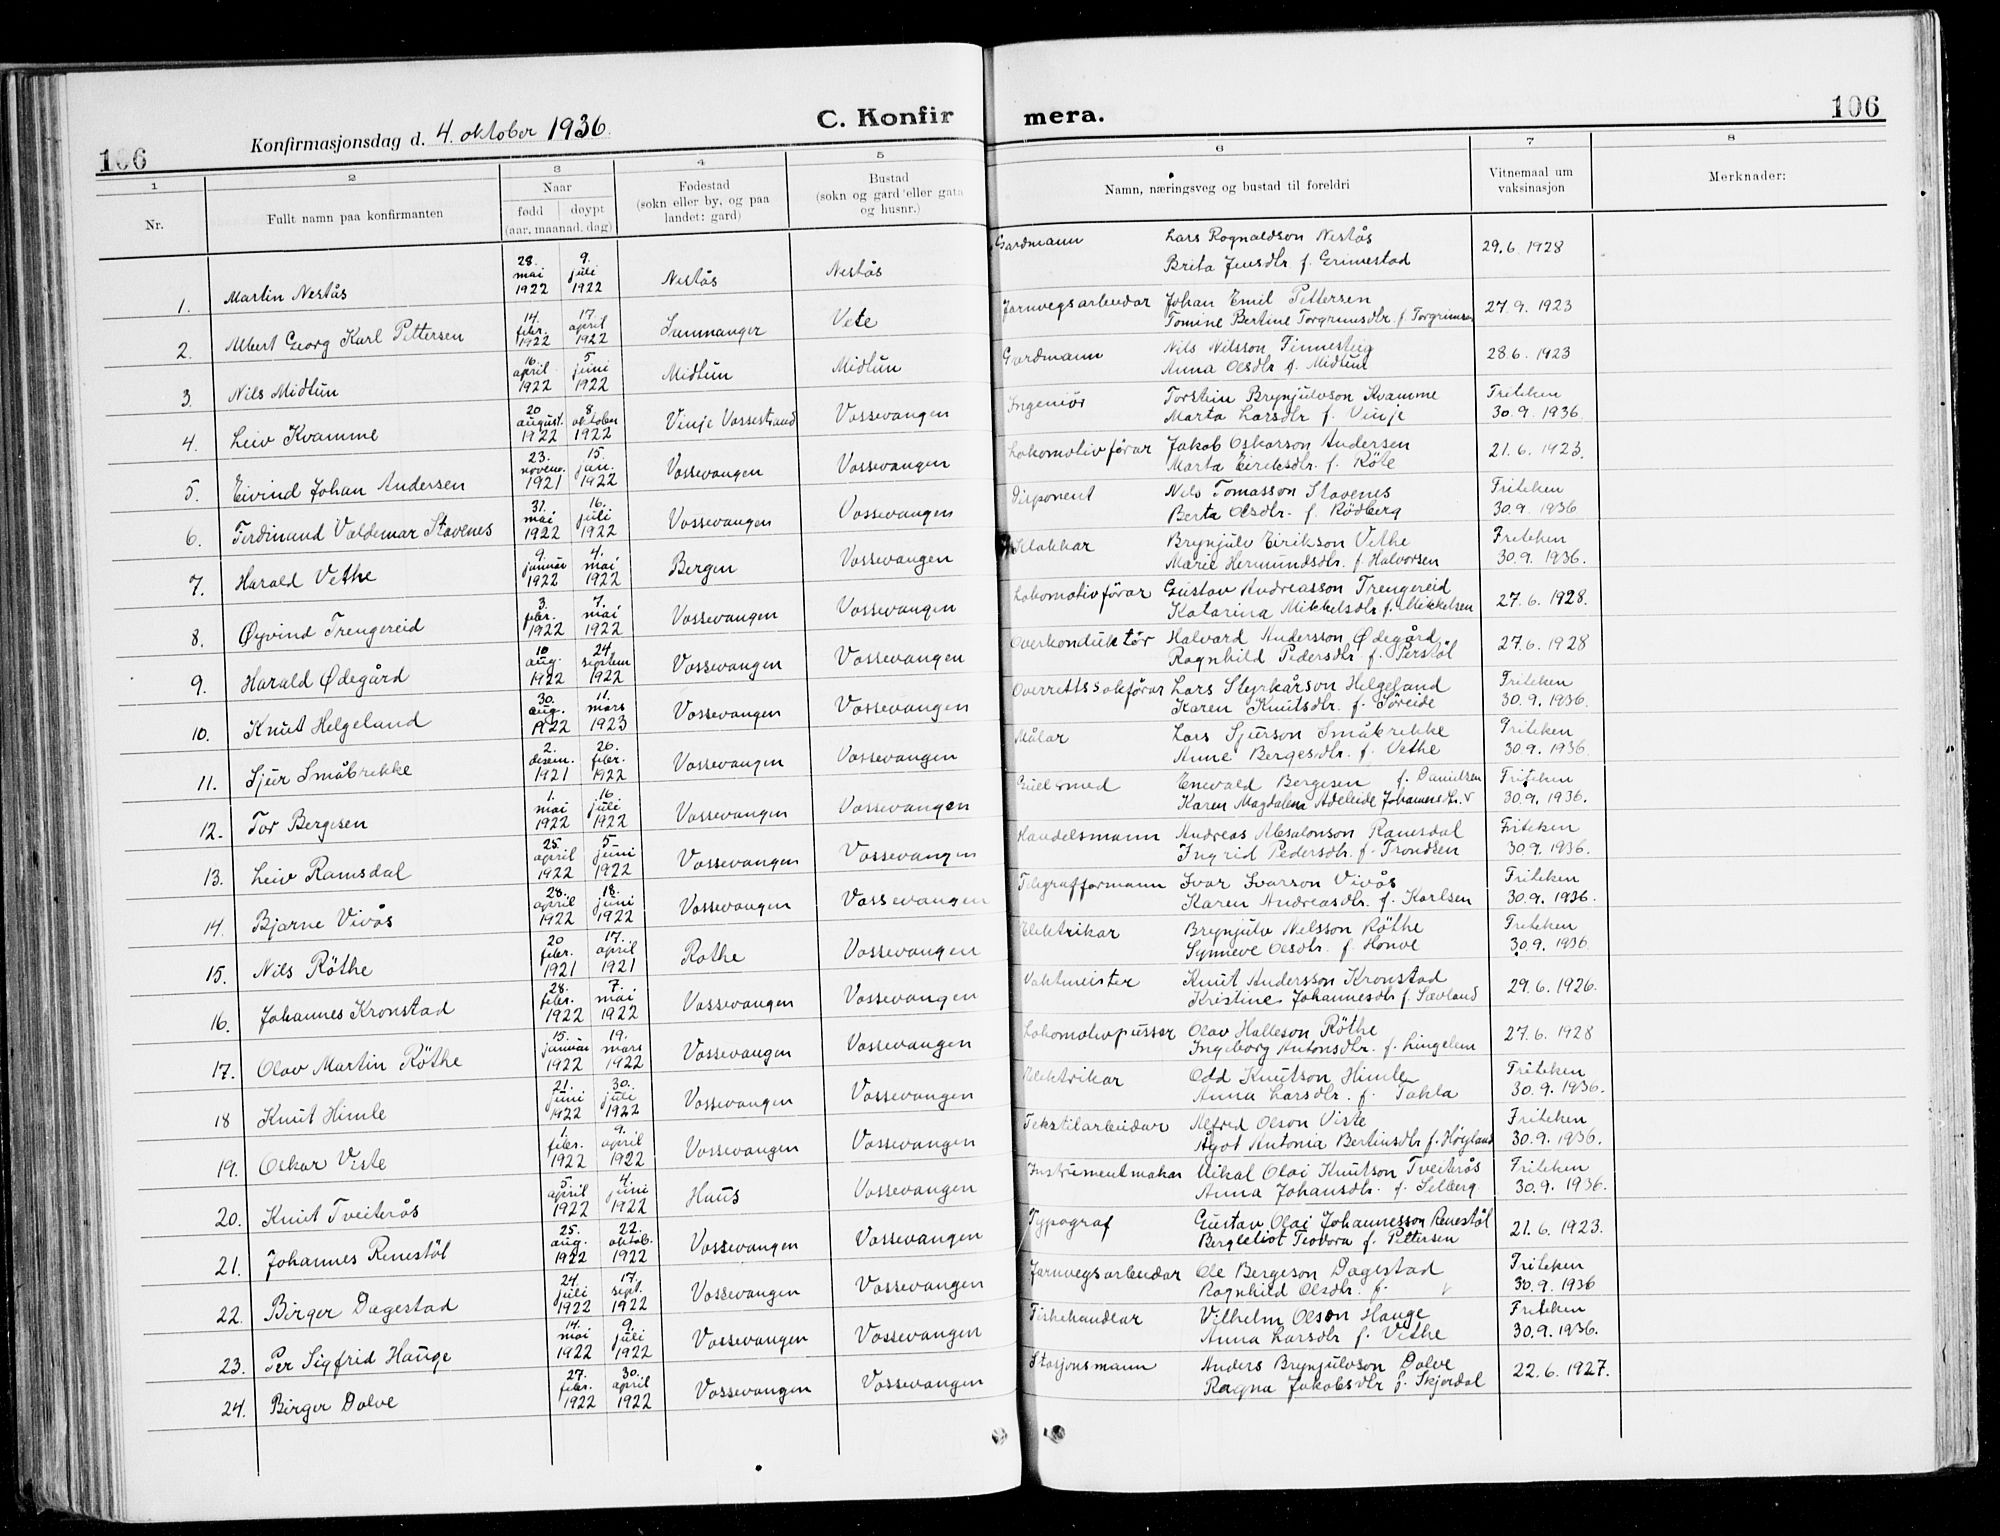 106
Konfirmasjonsdag d. 4. oktober 1936.
C. Konfirmera.
106
1 2 3 4 5 6 7 8
Nr. | Fullt namn paa konfirmanten | Naar fødd døypt (aar, maanad, dag) | Fødestad (sokn eller by, og paa landet: gard) | Bustad (sokn og gard eller gata og husnr.) | Namn, næringsveg og bustad til foreldri | Vitnemaal um vaksinasjon | Merknader:
1. Martin Nestås | 28. mai 1922 | 9. juli 1922 | Nestås | Nestås | Gardmann Lars Rognaldson Nestås Brita Jensdtr f. Grimestad | 29.6 1928
2. Albert Georg Karl Pettersen | 14. febr. 1922 | 17. april 1922 | Samnanger | Vete | Jarnvegsarbeidar Johan Emil Pettersen Tomine Bertine Torgrimsdtr f. Torgrimsen | 27.9. 1923
3. Nils Midtun | 16. april 1922 | 5. juni 1922 | Midtun | Midtun | Gardmann Nils Nilsson Finnesteig Anna Olsdtr f. Midtun | 28.6. 1923
4. Leiv Kvamme | 20 august. 1922 | 8. oktober 1922 | Vinje Vossestrand | Vossevangen | Ingeniør Torstein Brynjulvson Kvamme Marta Larsdtr. f. Vinje | Friteken 30.9. 1936.
5. Eivind Johan Andersen | 23. novem. 1921 | 15. jan. 1922 | Vossevangen | Vossevangen | Lokomotivförar Jakob Oskarson Andersen Marta Eiriksdtr. f. Röte | 21.6. 1923.
6. Ferdinand Valdemar Stavenes | 31. mai 1922 | 16. juli 1922 | Vossevangen | Vossevangen | Disponent Nils Tomasson Stavenes Berta Olsdtr. f. Rödberg | Friteken 30.9. 1936
7. Harald Vethe | 9. januar 1922 | 4. mai 1922 | Bergen | Vossevangen | Klokkar Brynjulv Eirikson Vethe Marie Hermundsdtr. f. Halvorsen | Friteken 30.9. 1936.
8. Øyvind Trengereid | 3. febr. 1922 | 7. mai 1922 | Vossevangen | Vossevangen | Lokomotivförar Gustav Andreasson Trengereid Katarina Mikkelsdtr f. Mikkelsen | 27.6. 1928.
9. Harald Ødegård | 10 aug. 1922 | 24. septem 1922 | Vossevangen | Vossevangen | Overkonduktør Halvard Andersson Ødegård Ragnhild Pedersdtr. f. Perstöl | 27.6. 1928
10. Knut Helgeland | 30. aug. 1922 | 11. mars 1923 | Vossevangen | Vossevangen | Overrettssakførar Lars Styrkårson Helgeland Karen Knutsdtr. f. Søreide | Friteken 30.9. 1936.
11. Sjur Småbrekke | 2. desem. 1921 | 26. febr. 1922 | Vossevangen | Vossevangen | Målar Lars Sjurson Småbrekke Anne Bergesdtr. f. Vethe | Friteken 30.9. 1936.
12. Tor Bergesen | 1. mai 1922 | 16. juli 1922 | Vossevangen | Vossevangen | Gullsmed Enevald Bergesen Karen Magdalena Adeleide Johannesdtr. f. Danielsen | Friteken 30.9. 1936.
13. Leiv Ramsdal | 25. april 1922 | 5. juni 1922 | Vossevangen | Vossevangen | Handelsmann Andreas Absalonson Ramsdal Ingrid Pedersdtr. f. Trondsen | Friteken 30.9. 1936.
14. Bjarne Vivås | 28. april 1922 | 18. juni 1922 | Vossevangen | Vossevangen | Telegrafformann Ivar Ivarson Vivås Karen Andreasdtr. f. Karlsen | Friteken 30.9. 1936.
15. Nils Röthe | 20 febr. 1921 | 17. april 1921 | Rothe | Vossevangen | Elektrikar Brynjulv Nelsson Röthe Synneve Olsdtr. f. Honve | Friteken 30.9. 1936.
16. Johannes Kronstad | 28. febr. 1922 | 7. mai 1922 | Vossevangen | Vossevangen | Vaktmeister Knut Andersson Kronstad Kristine Johannesdtr f. Sævland | 29.6. 1926.
17. Olav Martin Röthe | 15. januar 1922 | 19. mars 1922 | Vossevangen | Vossevangen | Lokomotivpusser Olav Halleson Röthe Ingeborg Antonsdtr. f. Lingelem | 27.6. 1928
18 Knut Himle | 21. juni 1922 | 30. juli 1922 | Vossevangen | Vossevangen | Elektrikar Odd Knutson Himle Anna Larsdtr. f. Takla | Friteken 30.9. 1936.
19. Oskar Viste | 1. febr. 1922 | 9. april 1922 | Vossevangen | Vossevangen | Tekstilarbeidar Alfred Olson Viste Ågot Antonia Bertinsdtr f. Høyland | Friteken 30.9. 1936.
20. Knut Tveiterås | 5. april 1922 | 4. juni 1922 | Haus | Vossevangen | Instrumentmakar Mikal Olai Knutson Tveiterås Anna Johansdtr. f. Selberg | Friteken 30.9. 1936.
21. Johannes Renestöl | 25. aug. 1922 | 22. oktob. 1922 | Vossevangen | Vossevangen | Typograf Gustav Olai Johannesson Renestöl Bergletiot Teodora f. Pettersen | 21.6. 1923.
22. Birger Dagestad | 24. juli 1922 | 17. sept. 1922 | Vossevangen | Vossevangen | Jarnvegsarbeidar Ole Bergeson Dagestad Ragnhild Olsdtr. f. | Friteken 30.9. 1936
23. Per Sigfrid Hauge | 14. mai 1922 | 9. juli 1922 | Vossevangen | Vossevangen | Fiskehandlar Vilhelm Olson Hauge Anna Larsdtr f. Vethe | Friteken 30.9. 1936.
24. Birger Dolve | 27. febr. 1922 | 30. april 1922 | Vossevangen | Vossevangen | Stasjonsmann Anders Brynjulvson Dolve Ragna Jakobsdtr f. Skjerdal | 22.6. 1927.